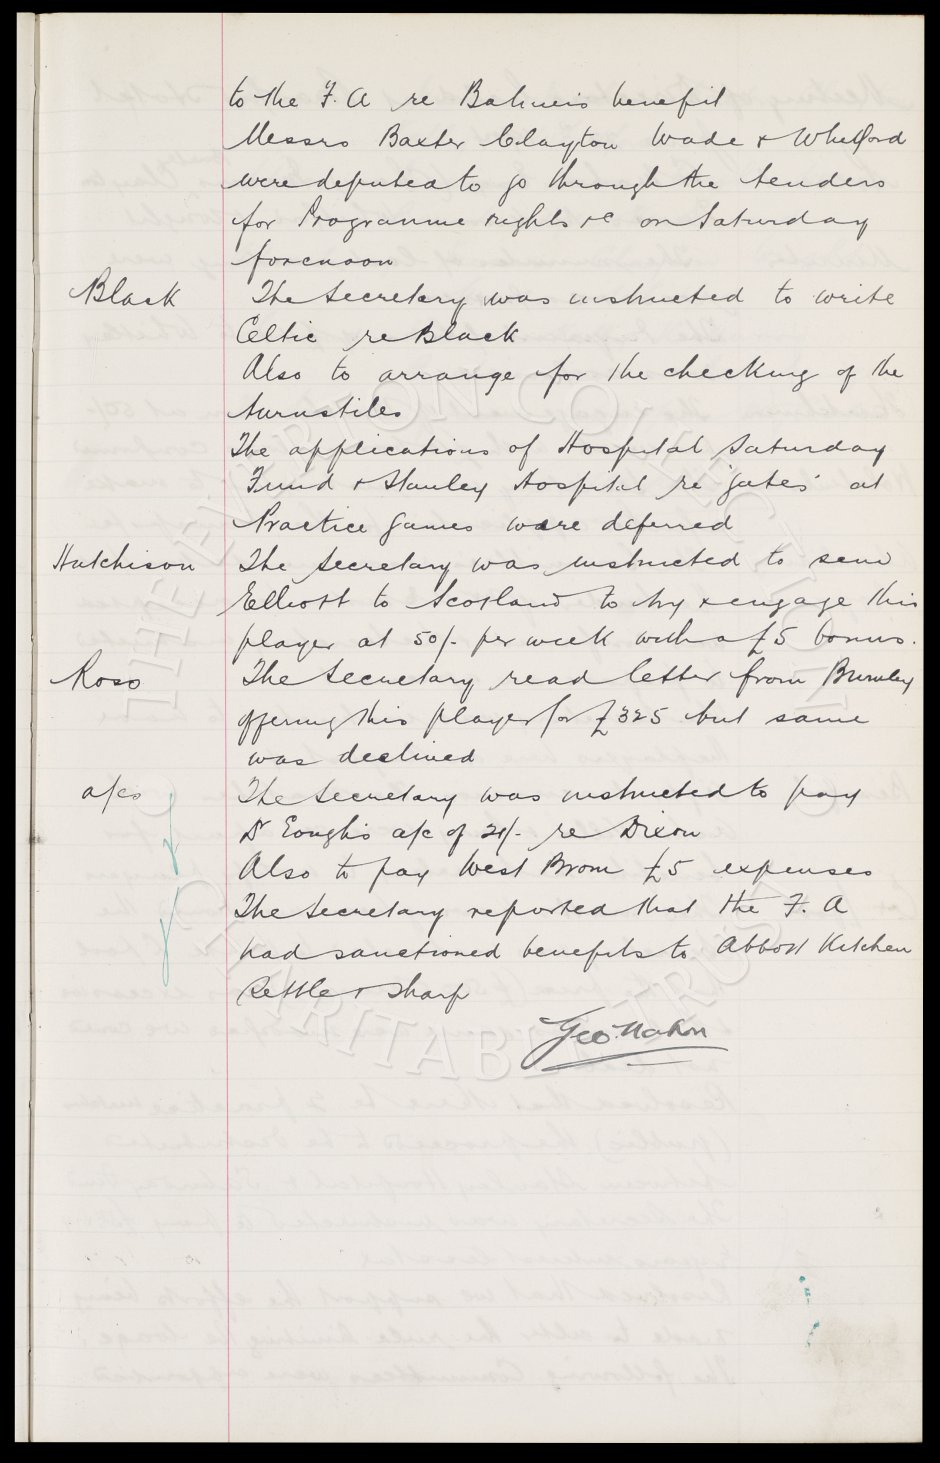 to the F. A re Balmers benefit
Messrs Baxter Clayton Wade & Whitford
were deputed to go through the tenders
for Programme rights &c on Saturday
forenoon
Black The Secretary was instructed to write
Celtic re Black
Also to arrange for the checking of the
turnstiles
The applications of Hospital Saturday
Fund & Stanley Hospital re 'gates' at
Practice games were deferred
Hutchison The Secretary was instructed to send
Elliott to Scotland to try & engage this
player at 50/- per week with a £5 bonus.
Ross The Secretary read letter from Burnley
offering this player for £325 but same
was declined
a/cs The Secretary was instructed to pay
Dr a/c of 21/- re Dixon
Also to pay West Brom £5 expenses
The Secretary reported that the F. A
had sanctioned benefits to Abbott Kitchen
Settle & Sharp
Geo. Mahon
EVERTON COLLECTION
CHARITABLE TRUST